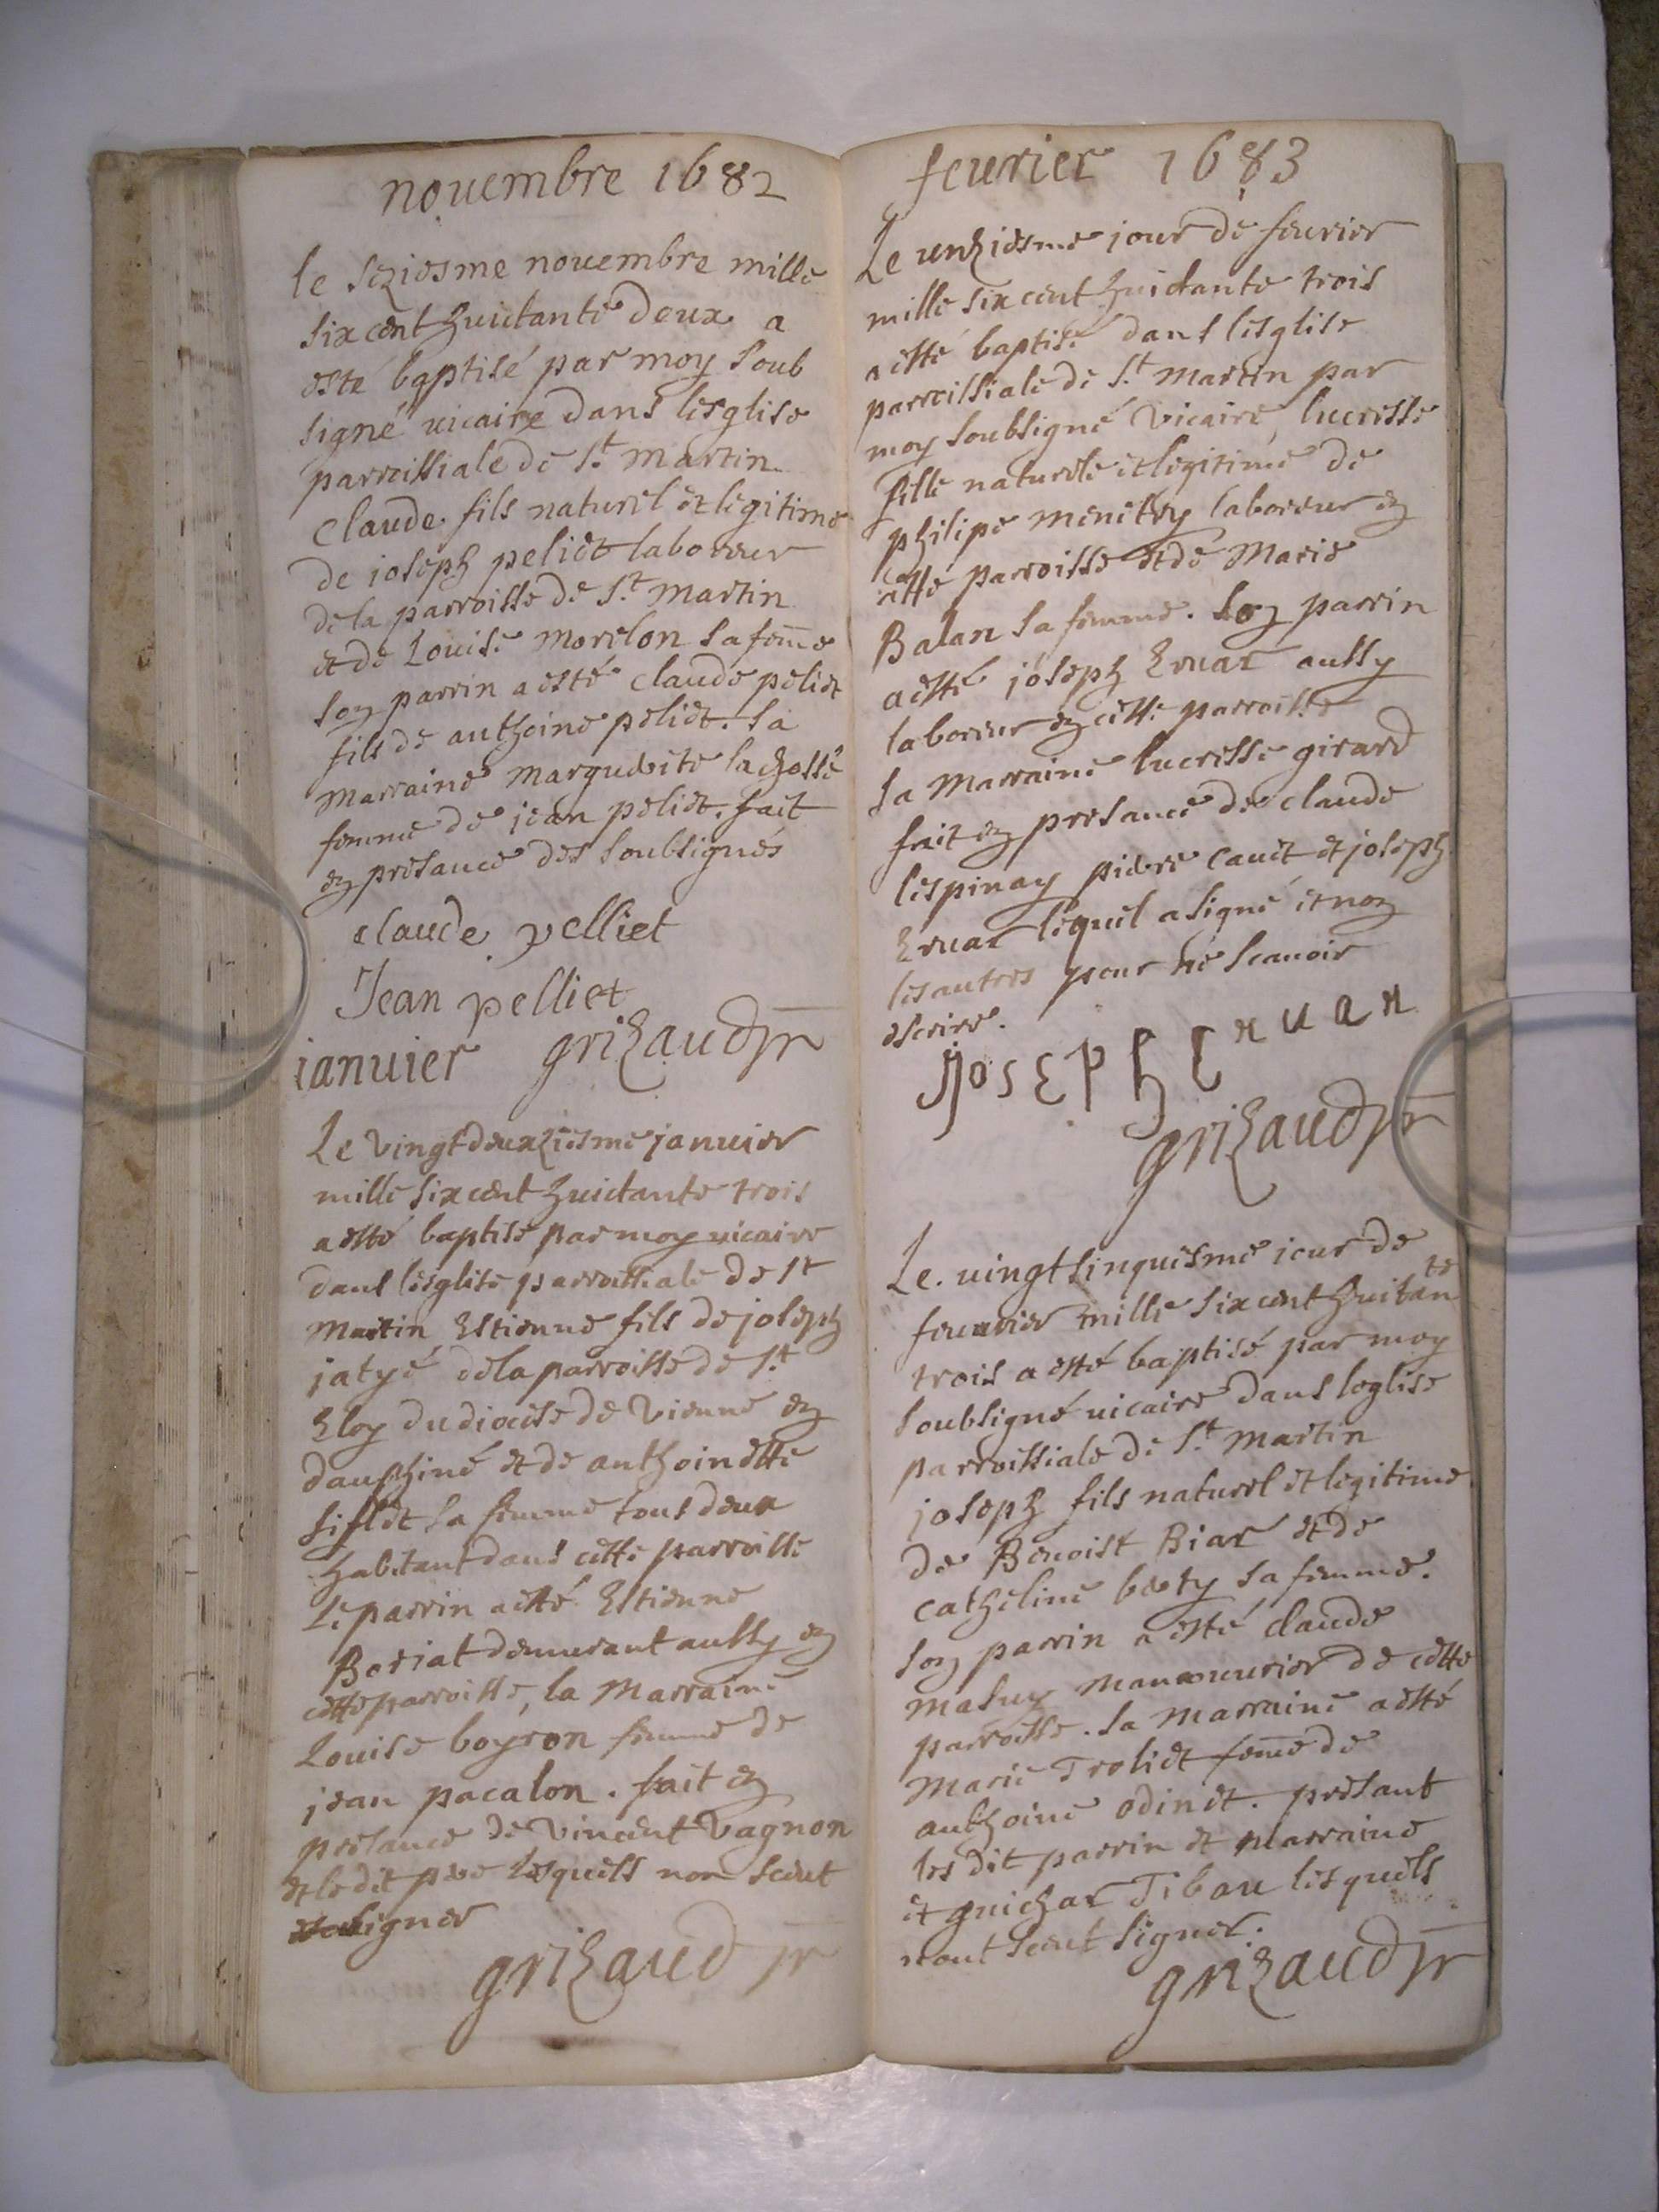 nouembre 1682
le seziesme nouembre mille
six cent huictante deux a
esté baptisé par moy soub
signé uicaire dans lesglise
parroissiale de St Martin
Claude fils naturel et legitime
de ioseph peliet laboreur
de la parroisse de St Martin
et de Louise Morelon sa feme
son parrin a esté Claude peliet
fils de anthoine peliet. sa
Marraine Marguerite lachosse
femme de jean peliet. fait
en presance des soubsignés
claude pelliet
Jean pelliet
grizaud pr
ianuier
Le vingt deuxziesme januier
mille six cent huictante trois
a esté baptisé par moy uicaire
dans lesglise parroissiale de St
Martin Estienne fils de joseph
jatyé de la parroisse de St
Eloy du diocise de Vienne en
dauphiné et de anthoinette
siflet sa femme tous deux
habitant dans cette parroisse
Le parrin a esté Estienne
Boriat demurant aussy en
cette parroisse, la Marraine
Louise boyron femme de
jean pacalon. fait en
presance de Vincent Vagnon
et le dit pere lesquels non sceut
signer
grizaud pr
feurier 1683
Le unziesme jour de feurier
mille six cent huictante trois
a esté baptisé dans lesglise
parroissiale de St Martin par
moy soubsigné Vicaire, lucresse
fille naturele et legitime de
philipe menitry laboreur en
cette parroisse et de Marie
Balan sa femme. Son parrin
a esté joseph Eruar aussy
laboreur en cette parroisse
sa Marraine lucresse girard
fait en presance de claude
lespinay piere cauet et joseph
Eruar lequel a signé et non
les autres pour ne scauoir
escrire.
jjosEph Eruar
grizaud pr
Le. uingt sinquiesme iour de
feurier mille six cent huitante
trois a esté baptisé par moy
soubsigné uicaire dans leglise
parroissiale de St Martin
joseph fils naturel et legitime
de Benoist Biar et de
catheline bery sa femme.
son parrin a esté claude
masuy manouurier de cette
parroisse. sa Marraine a esté
Marie Troliet feme de
anthoine odinet. presant
les dit parrin et marraine
et guichar Tibau lesquels
nont sceut signer.
grizaud pr